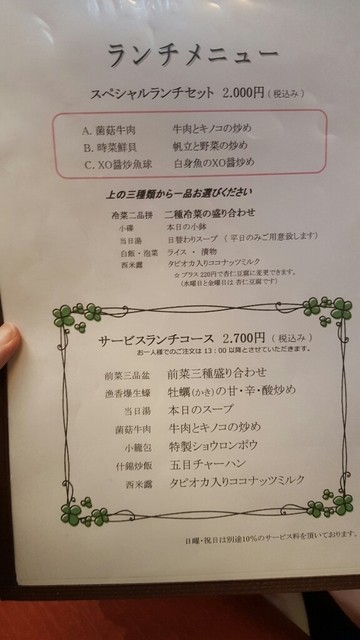 ランチメニュー
スペシャルランチセット 2.000円 (税込み)
A. 菌菇牛肉 牛肉とキノコの炒め
B. 時菜鮮貝 帆立と野菜の炒め
C. XO醬炒魚球 白身魚のXO醬炒め
上の三種類から一品お選びください
冷菜二品拼 二種冷菜の盛り合わせ
小碟 本日の小鉢
当日湯 日替わりスープ (平日のみご用意致します)
白飯・泡菜 ライス・漬物
西米露 タピオカ入りココナッツミルク
☆プラス220円で杏仁豆腐に変更できます。
(水曜日と金曜日は 杏仁豆腐です)
サービスランチコース 2.700円 (税込み)
お一人様でのご注文は 13:00 以降とさせていただきます。
前菜三品盆 前菜三種盛り合わせ
漁香爆生蠔 牡蠣(かき)の甘・辛・酸炒め
当日湯 本日のスープ
菌菇牛肉 牛肉とキノコの炒め
小籠包 特製ショウロンポウ
什錦炒飯 五目チャーハン
西米露 タピオカ入りココナツミルク
日曜・祝日は別途10%のサービス料を頂いております。